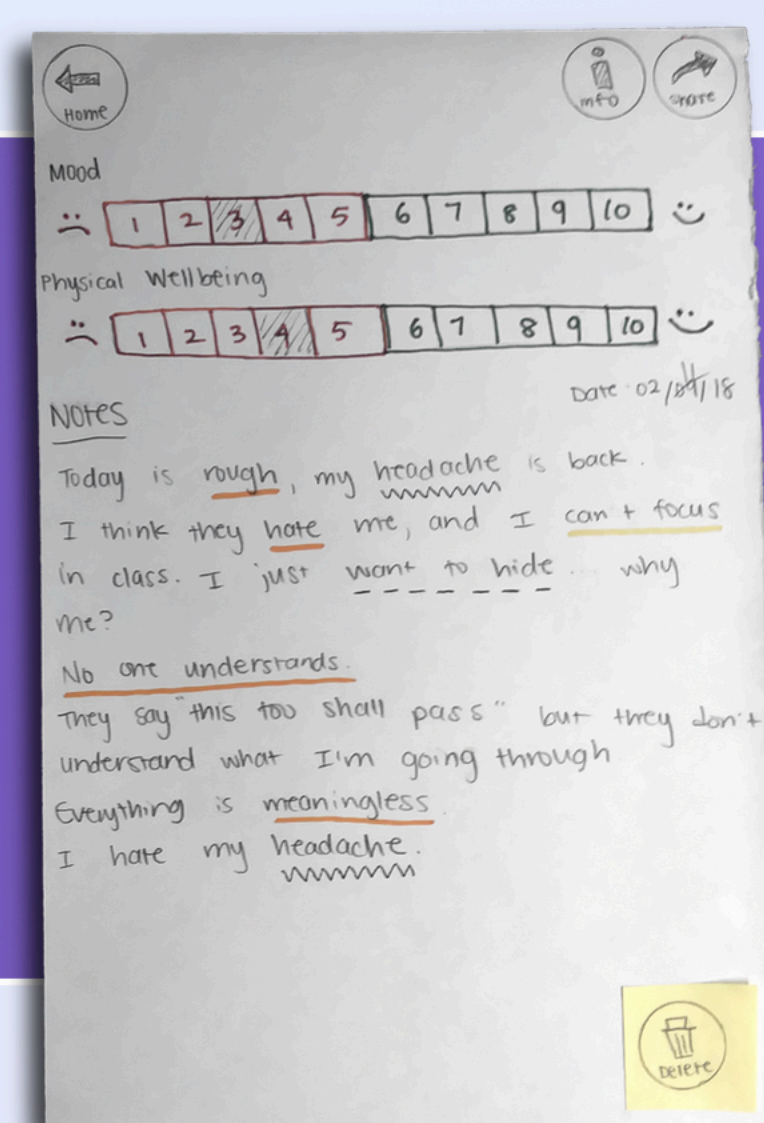 Home
info
share
Mood
1 2 3 4 5 6 7 8 9 10
Physical Wellbeing
1 2 3 4 5 6 7 8 9 10
Date 02/ /18
Notes
Today is rough, my headache is back.
I think they hate me, and I can't focus
in class. I just want to hide... why
me?
No one understands.
They say "this too shall pass" but they don't
understand what I'm going through
Everything is meaningless.
I hate my headache.
Delete